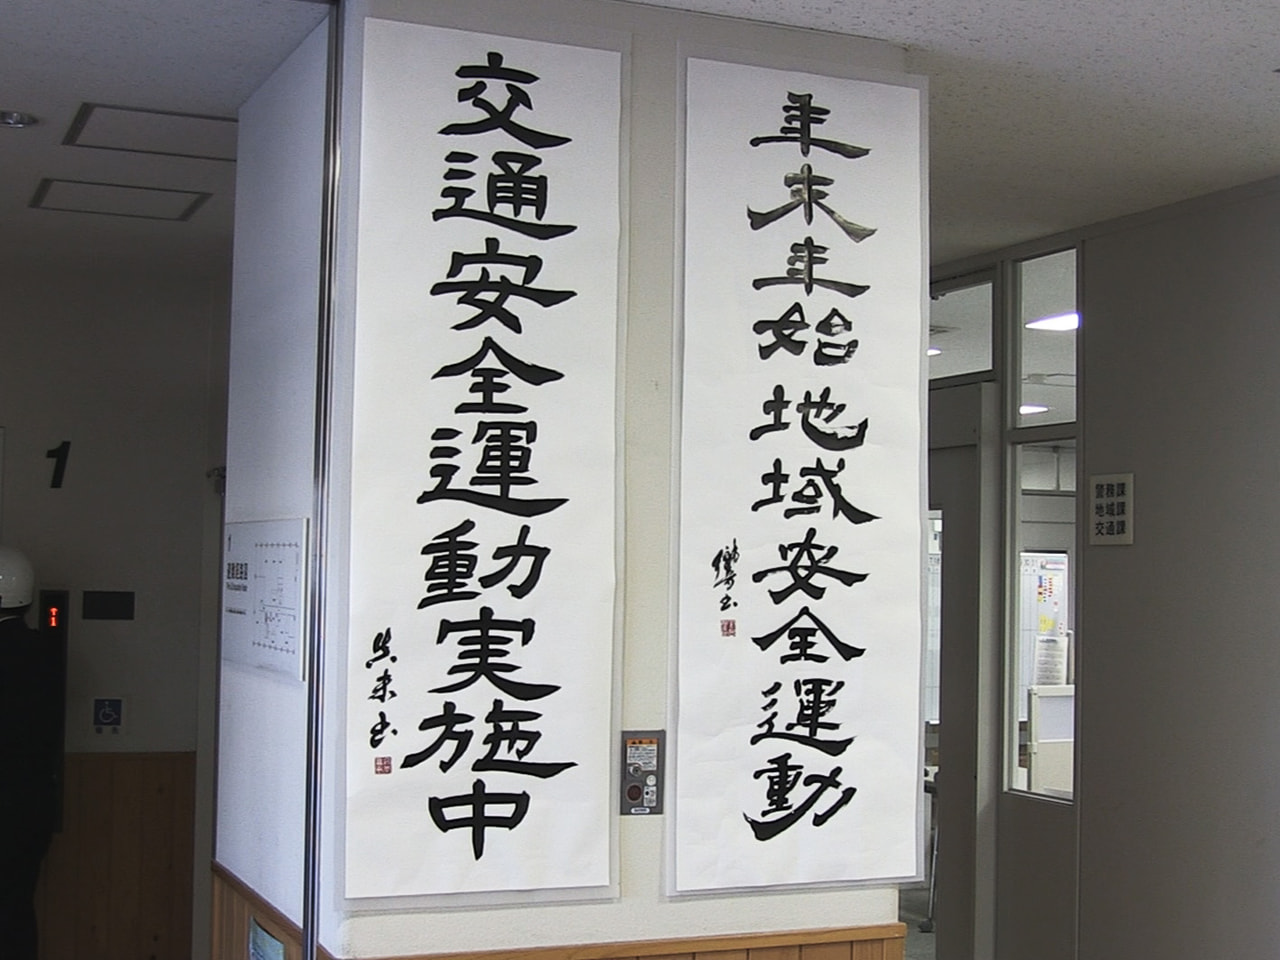 年末年始地域安全運動
交通安全運動実施中
警務課
地域課
交通課
1
1